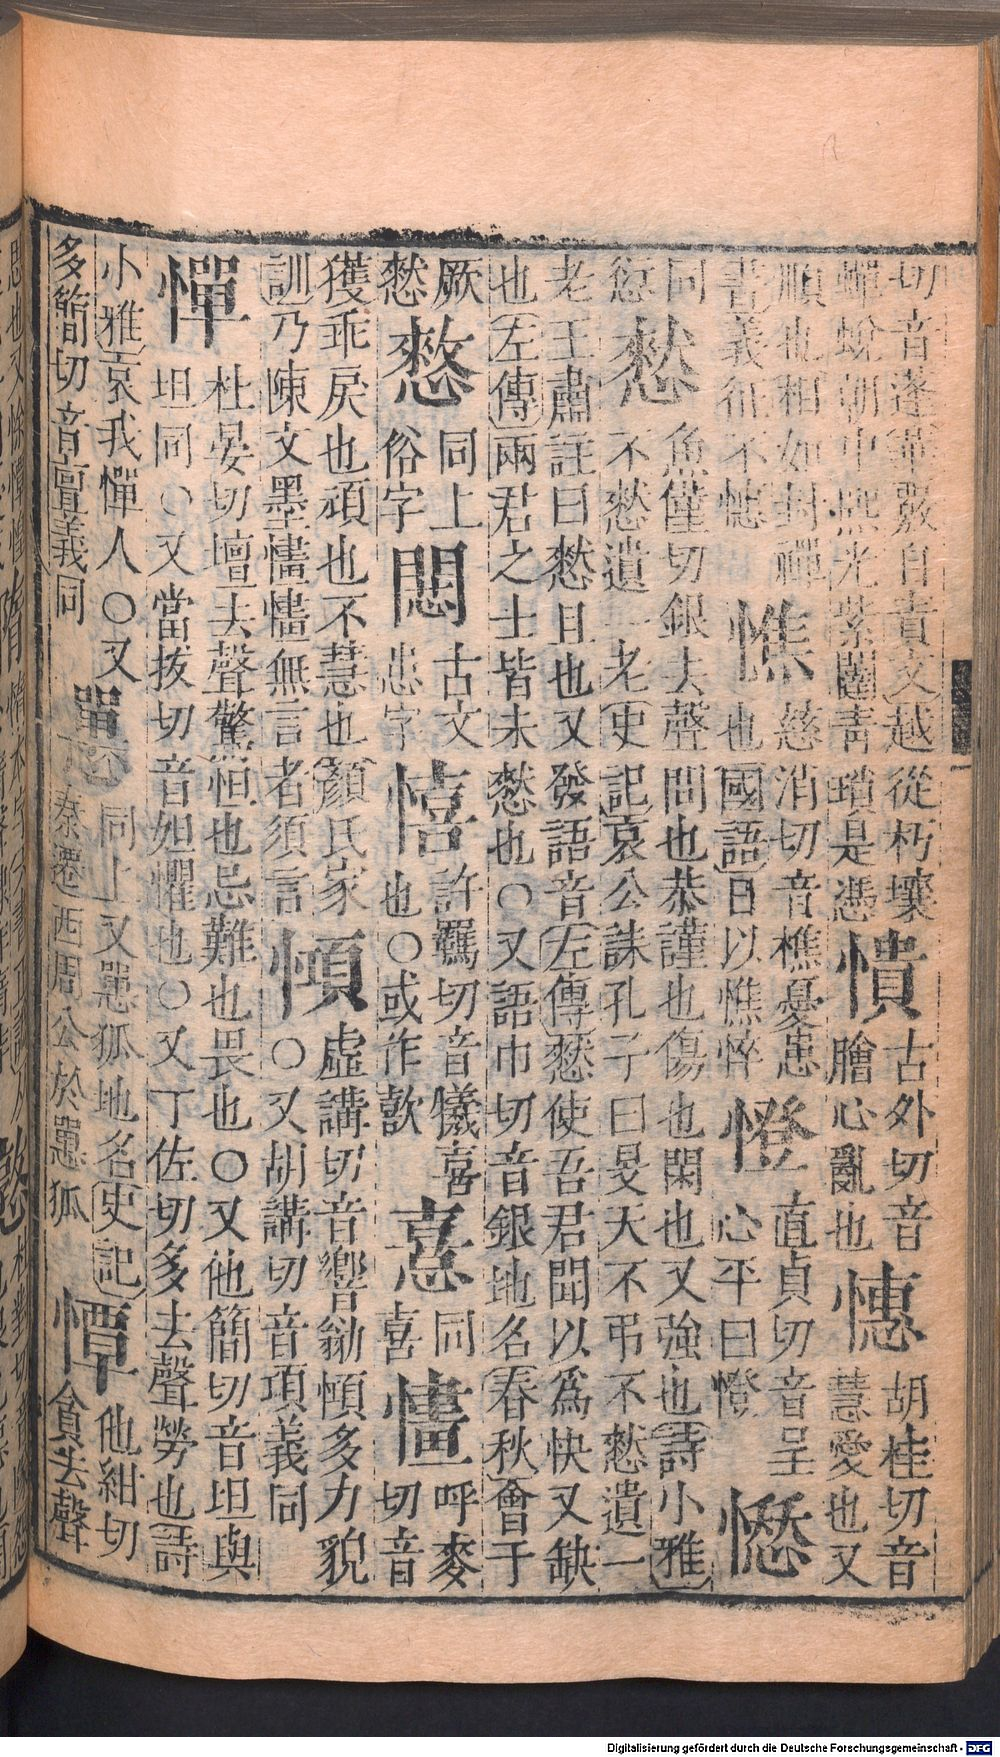 切音蓬華嚴自責文越從朽壤憒古外切音憓胡桂切音
蟬蛻朝中熙光紫闥靑瑣是憑憒膾心亂也憓慧愛也又
順也相如封禪憔慈消切音樵憂患憕直貞切音呈
書義征不憓憔也國語日以憔悴憕心平曰憕憖
同憖魚僅切銀去聲問也恭謹也傷也閑也又強也詩小雅
不憖遺一老史記哀公誄孔子曰旻天不弔不憖遺一
老王肅註曰憖且也又發語音左傳憖使吾君聞以爲快又缺
也左傳兩君之士皆未憖也○又語巾切音銀地名春秋會于
厥憖憖同上悶古文憘許羈切音犧喜憙同憘呼麥
憖俗字悲字憘也○或作歖憙喜切音
獲乖戾也頑也不慧也顏氏家虛講切音響勜㥬多力貌
訓乃陳文墨㦎㦎無言者須言○又胡講切音項義同
憚杜晏切壇去聲驚怛也忌難也畏也○又他簡切音坦與
坦同○又當拔切音妲懼也○又丁佐切多去聲勞也詩
小雅哀我憚人○又同上又㥏狐地名史記憛他紺切
多簡切音亶義同秦遷西周公於㥏狐憛貪去聲
Digitalisierung gefördert durch die Deutsche Forschungsgemeinschaft - DFG